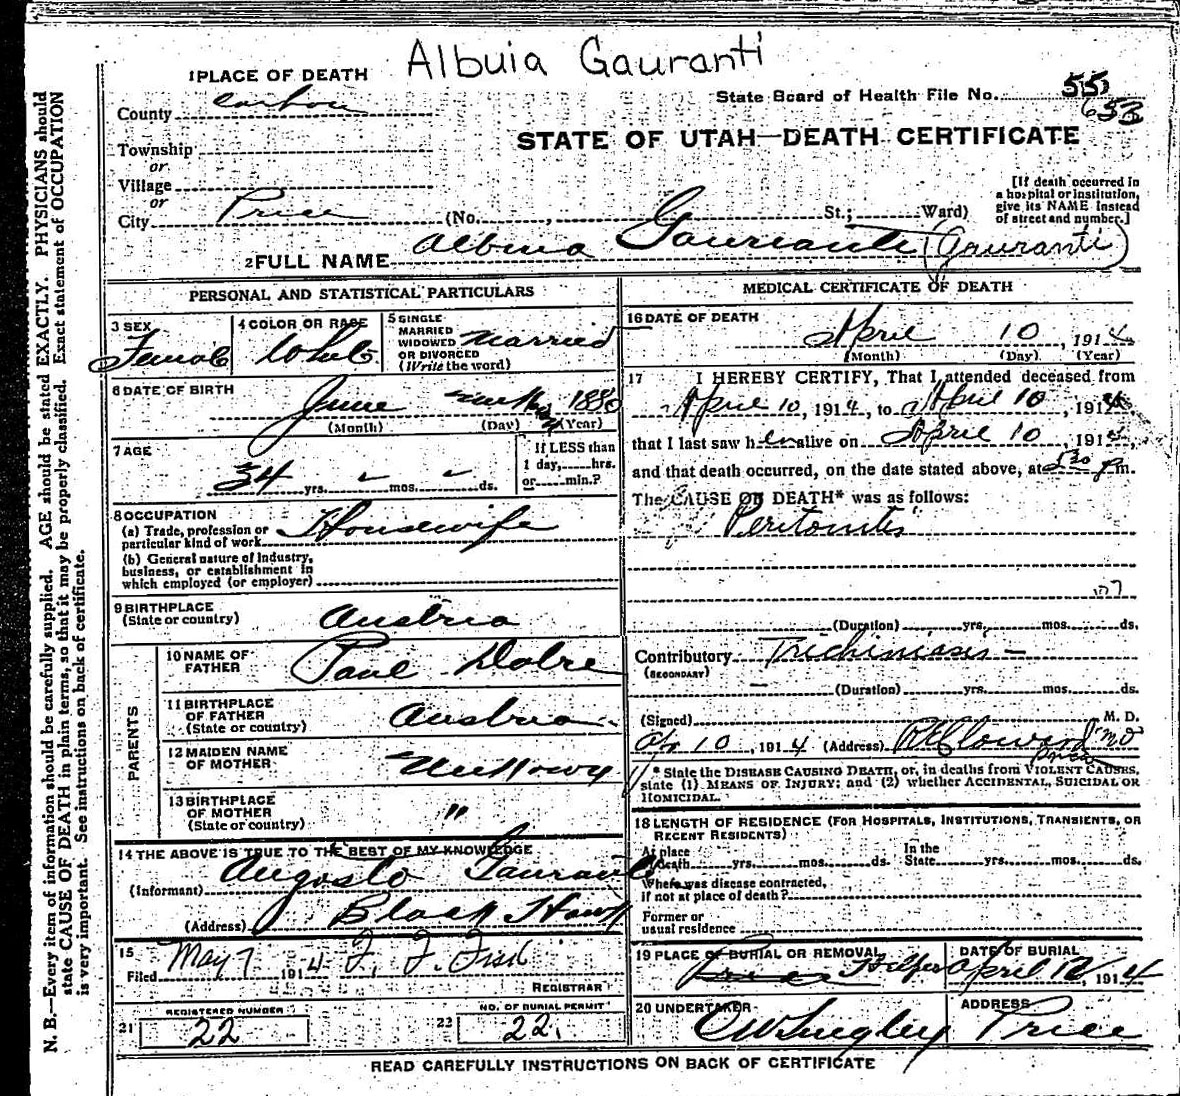 Albuia Gauranti
1 PLACE OF DEATH
County Carbon
State Board of Health File No. 55
653
STATE OF UTAH—DEATH CERTIFICATE
Township
or
Village
or
City Price (No. , St.; Ward)
[If death occurred in
a hospital or institution,
give its NAME instead
of street and number.]
2 FULL NAME Albuia Gauranti (Gauranti)
PERSONAL AND STATISTICAL PARTICULARS
3 SEX Female
4 COLOR OR RACE White
5 SINGLE
MARRIED
WIDOWED
OR DIVORCED
(Write the word) Married
6 DATE OF BIRTH
June 1880
(Month) (Day) (Year)
7 AGE
34 yrs. mos. ds.
If LESS than
1 day, hrs.
or min.?
8 OCCUPATION
(a) Trade, profession or
particular kind of work Housewife
(b) General nature of Industry,
business, or establishment in
which employed (or employer)
9 BIRTHPLACE
(State or country) Austria
PARENTS
10 NAME OF
FATHER Paul Dobre
11 BIRTHPLACE
OF FATHER
(State or country) Austria
12 MAIDEN NAME
OF MOTHER
13 BIRTHPLACE
OF MOTHER
(State or country) "
14 THE ABOVE IS TRUE TO THE BEST OF MY KNOWLEDGE
(Informant) Augosto Gauranti
(Address) Black Hawk
15
Filed May 7 1914 F. F. Fisk
REGISTRAR
REGISTERED NUMBER
21 22
NO. OF BURIAL PERMIT
22 22.
MEDICAL CERTIFICATE OF DEATH
16 DATE OF DEATH
April 10, 1914
(Month) (Day) (Year)
17 I HEREBY CERTIFY, That I attended deceased from
April 10, 1914, to April 10, 1914
that I last saw her alive on April 10, 1914,
and that death occurred, on the date stated above, at 530 p m.
The CAUSE OF DEATH* was as follows:
Peritonitis
(Duration) yrs. mos. ds.
Contributory Trichiniasis -
(SECONDARY)
(Duration) yrs. mos. ds.
(Signed) M. D.
Apr 10, 1914 (Address)
Price
* State the DISEASE CAUSING DEATH, or, in deaths from VIOLENT CAUSES,
state (1) MEANS OF INJURY; and (2) whether ACCIDENTAL, SUICIDAL OR
HOMICIDAL.
18 LENGTH OF RESIDENCE (FOR HOSPITALS, INSTITUTIONS, TRANSIENTS, OR
RECENT RESIDENTS)
At place
of death yrs. mos. ds.
In the
State yrs. mos. ds.
Where was disease contracted,
if not at place of death?
Former or
usual residence
19 PLACE OF BURIAL OR REMOVAL
Price Helper
DATE OF BURIAL
April 12, 1914
20 UNDERTAKER
ADDRESS
Price
READ CAREFULLY INSTRUCTIONS ON BACK OF CERTIFICATE
N. B.—Every item of information should be carefully supplied. AGE should be stated EXACTLY. PHYSICIANS should
state CAUSE OF DEATH in plain terms, so that it may be properly classified. Exact statement of OCCUPATION
is very important. See instructions on back of certificate.